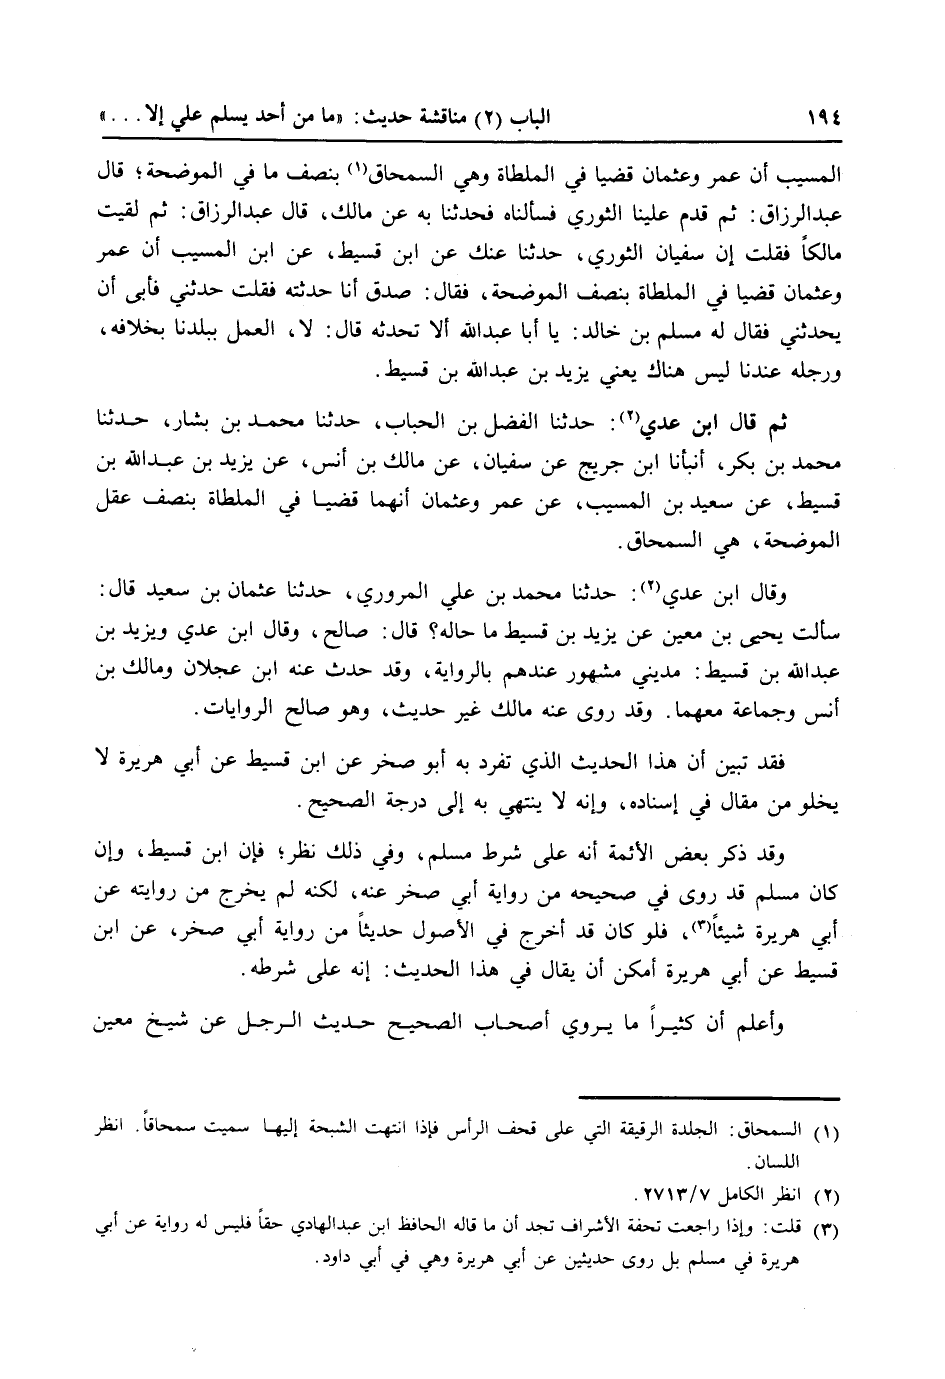 ١٩٤ الباب (٢) مناقشة حديث: «ما من أحد يسلم علي إلا...»
المسيب أن عمر وعثمان قضيا في الملطاة وهي السمحاق(١) بنصف ما في الموضحة؛ قال
عبدالرزاق: ثم قدم علينا الثوري فسألناه فحدثنا به عن مالك، قال عبدالرزاق: ثم لقيت
مالكاً فقلت إن سفيان الثوري، حدثنا عنك عن ابن قسيط، عن ابن المسيب أن عمر
وعثمان قضيا في الملطاة بنصف الموضحة، فقال: صدق أنا حدثته فقلت حدثني فأبى أن
يحدثني فقال له مسلم بن خالد: يا أبا عبدالله ألا تحدثه قال: لا، العمل ببلدنا بخلافه،
ورجله عندنا ليس هناك يعني يزيد بن عبدالله بن قسيط.
ثم قال ابن عدي(٢): حدثنا الفضل بن الحباب، حدثنا محمد بن بشار، حدثنا
محمد بن بكر، أنبأنا ابن جريج عن سفيان، عن مالك بن أنس، عن يزيد بن عبدالله بن
قسيط، عن سعيد بن المسيب، عن عمر وعثمان أنهما قضيا في الملطاة بنصف عقل
الموضحة، هي السمحاق.
وقال ابن عدي(٢): حدثنا محمد بن علي المروري، حدثنا عثمان بن سعيد قال:
سألت يحيى بن معين عن يزيد بن قسيط ما حاله؟ قال: صالح، وقال ابن عدي ويزيد بن
عبدالله بن قسيط: مديني مشهور عندهم بالرواية، وقد حدث عنه ابن عجلان ومالك بن
أنس وجماعة معهما. وقد روى عنه مالك غير حديث، وهو صالح الروايات.
فقد تبين أن هذا الحديث الذي تفرد به أبو صخر عن ابن قسيط عن أبي هريرة لا
يخلو من مقال في إسناده، وإنه لا ينتهي به إلى درجة الصحيح.
وقد ذكر بعض الأئمة أنه على شرط مسلم، وفي ذلك نظر؛ فإن ابن قسيط، وإن
كان مسلم قد روى في صحيحه من رواية أبي صخر عنه، لكنه لم يخرج من روايته عن
أبي هريرة شيئاً(٣)، فلو كان قد أخرج في الأصول حديثاً من رواية أبي صخر، عن ابن
قسيط عن أبي هريرة أمكن أن يقال في هذا الحديث: إنه على شرطه.
وأعلم أن كثيراً ما يروي أصحاب الصحيح حديث الرجل عن شيخ معين
(١) السمحاق: الجلدة الرقيقة التي على قحف الرأس فإذا انتهت الشبحة إليها سميت سمحاقاً. انظر
اللسان.
(٢) انظر الكامل ٢٧١٣/٧.
(٣) قلت: وإذا راجعت تحفة الأشراف تجد أن ما قاله الحافظ ابن عبدالهادي حقاً فليس له رواية عن أبي
هريرة في مسلم بل روى حديثين عن أبي هريرة وهي في أبي داود.